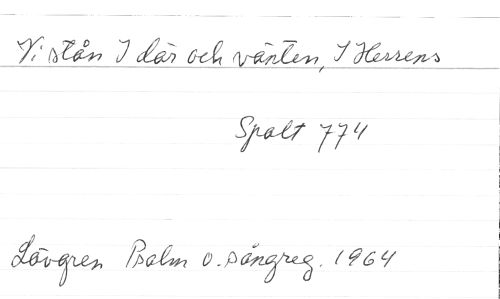 Vi stån I där och vänten, I Herrens
Spalt 774
Lövgren Psalm o. sångreg. 1964